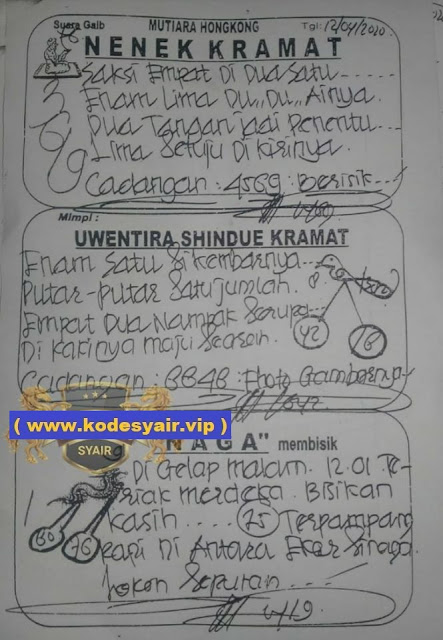 Suara Gaib MUTIARA HONGKONG Tgl: 12/04/2020
NENEK KRAMAT
Saksi Empat Di Dua Satu
Enam Lima Du,, Du,, Ainya.
Dua Tangan jadi Penentu
Lima Setuju Di Kirinya.
Cadangan : 4569 : Berisik
Mimpi :
UWENTIRA SHINDUE KRAMAT
Enam Satu Si Kembarnya
Putar-putar Satu jumlah.
Empat Dua Nampak Serupa
Di Kakinya maju Seasen.
42
Cadangan : 8848 : Photo Gambarnya
( www.kodesyair.vip )
SYAIR
NAGA" membisik
Di Gelap malam. 12.01 Te-
riak merdeka. Bisikan
Kasih .... 75 Terpampang
Rapi Di Antara Ekor Sinaga.
76